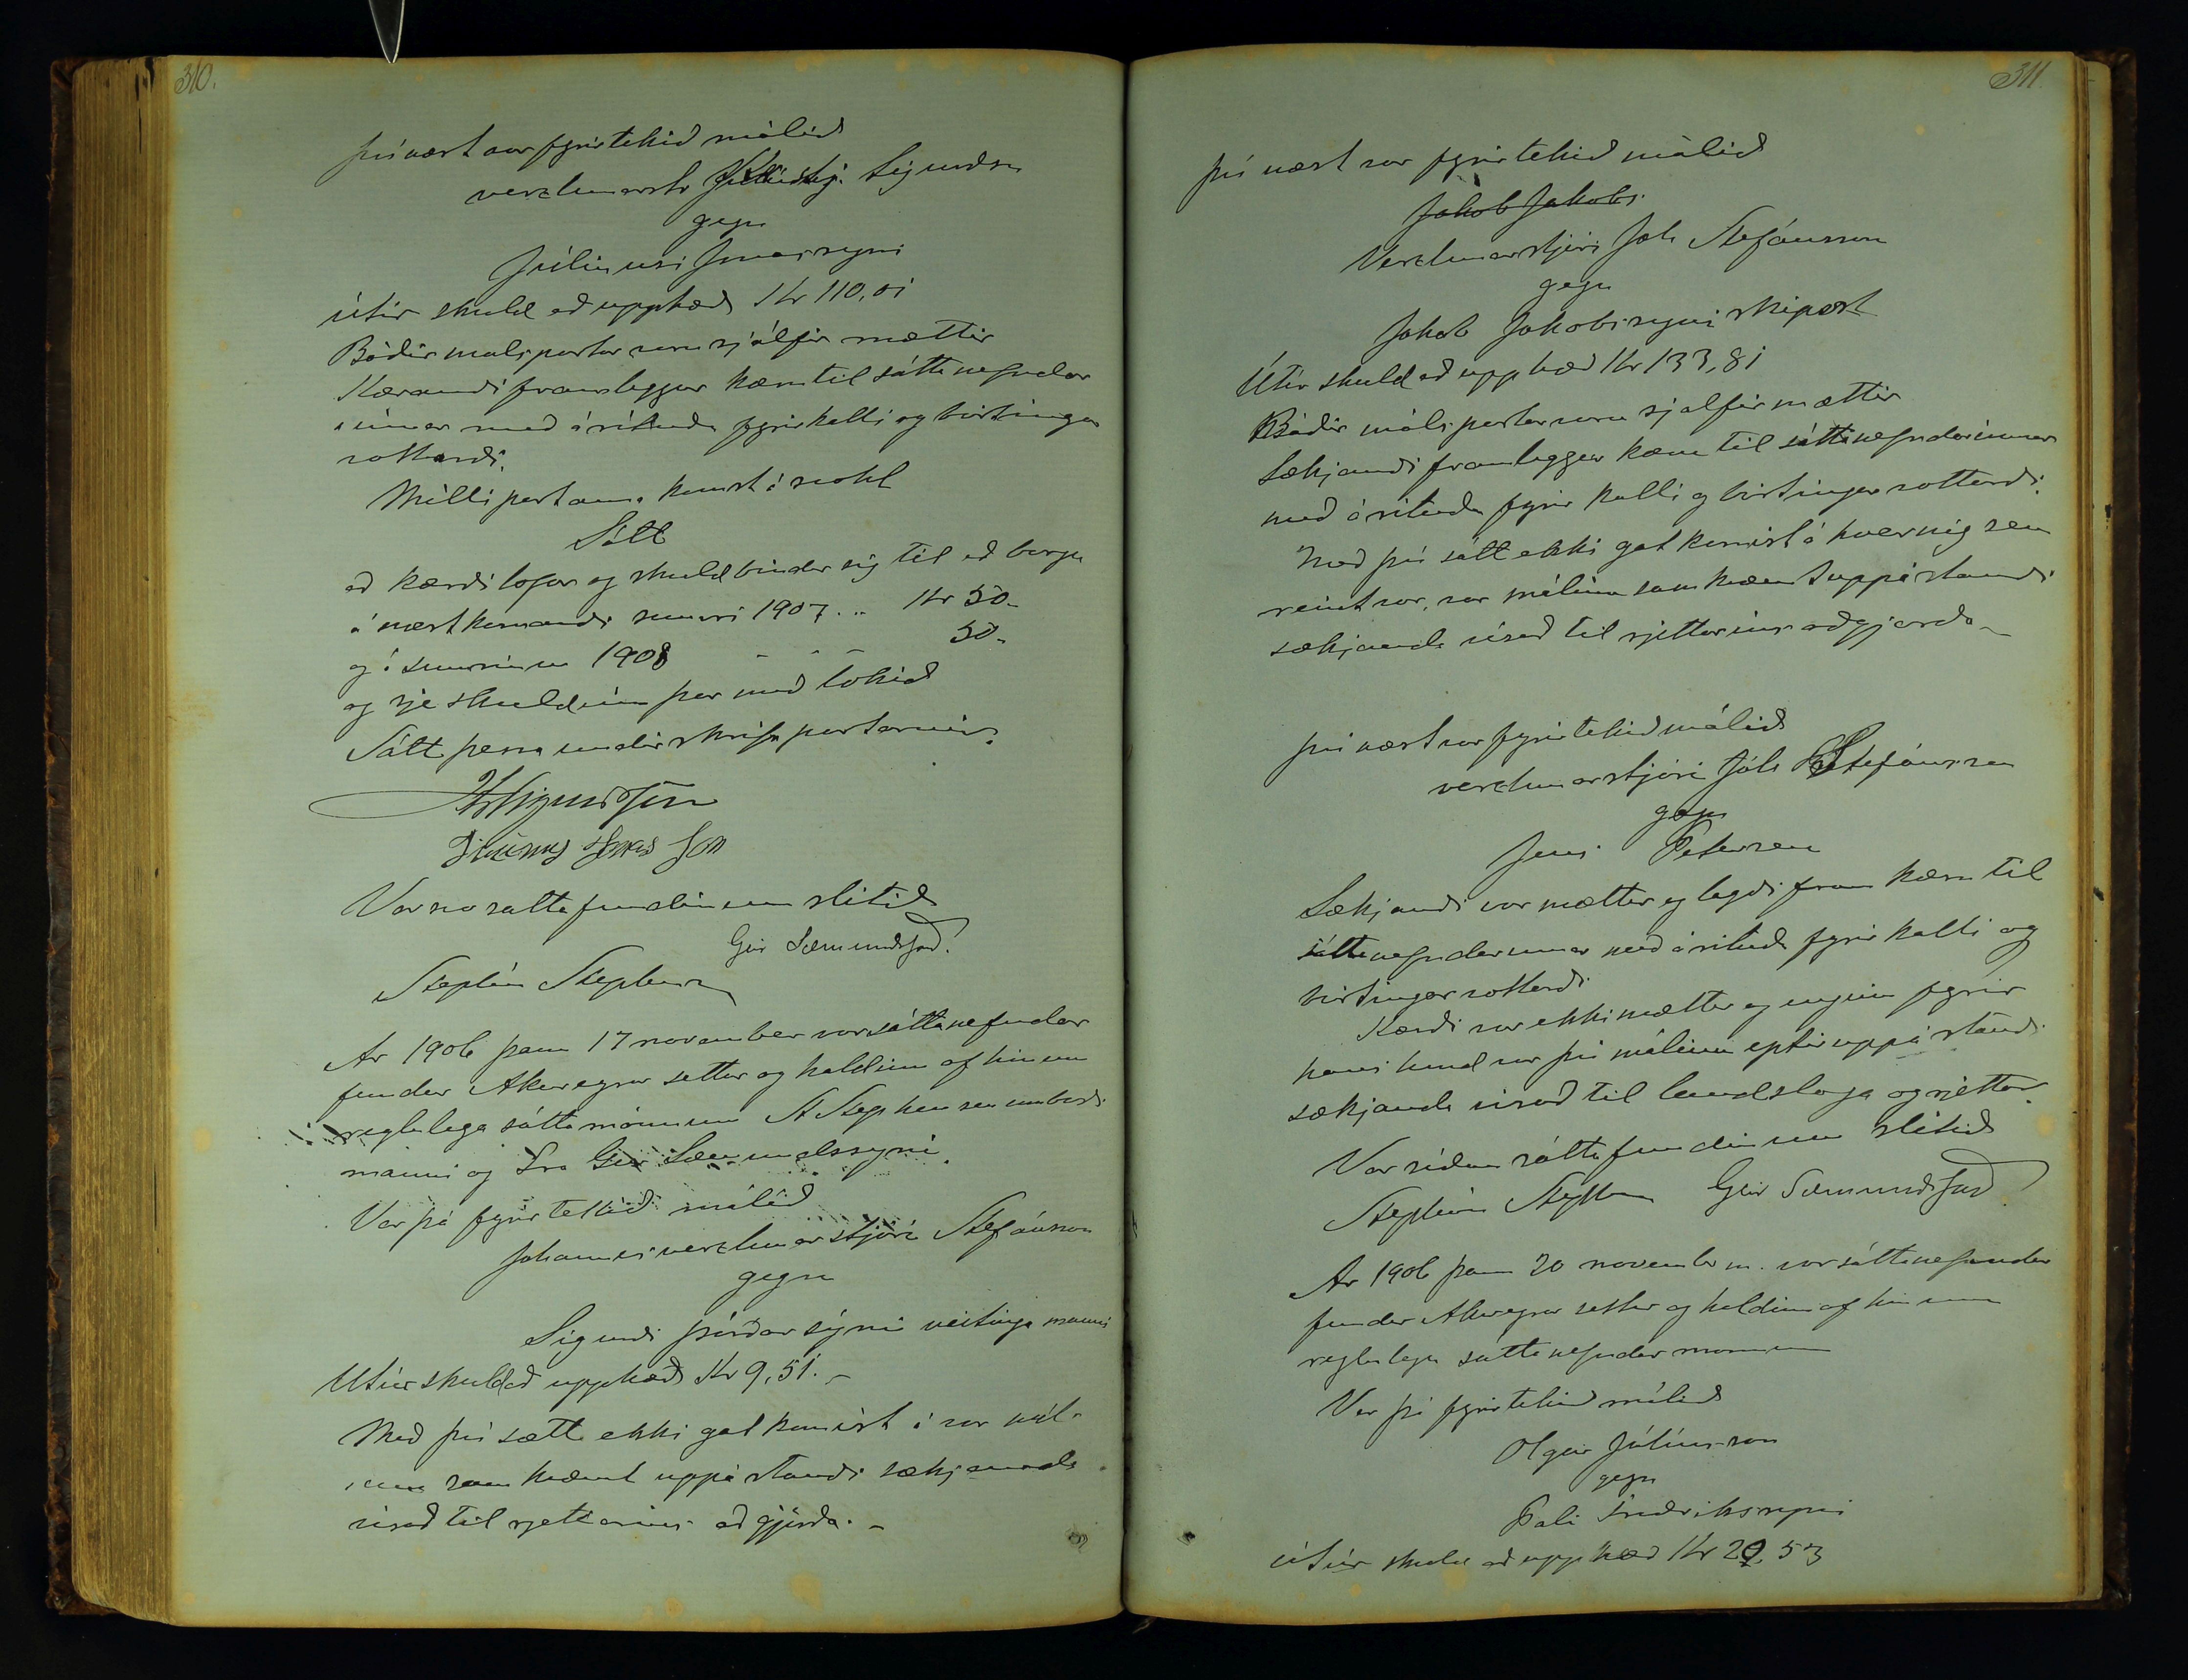 310.
því næst var fyrirtekið málið
verzlunarstj. Sigurðsson
gegn
Júlíusi Jónassyni
útúr skuld að upphæð Kr 110,01
Báðir málspartar voru sjálfir mættir
Kærandi framleggur kæru til sáttanefndar
innar með árituðu fyrirkalli og birtingar
vottorði.
Milli partanna komst á svohl
Sátt
að kærði lofar og skuldbindur sig til að borga
á næstkomandi sumri 1907 .. Kr 50.-
og á sumrinu 1908 - - - 50.-
og sje skuldinni þar með lokið
Sátt þessa undirskrifa partarnir.
Sigurðsson
Júlíus Jónasson
Var svo sáttafundinum slitið
Geir Sæmundsson.
Stephán Stephensen
Ár 1906 þann 17 november var sáttanefndar
fundur Akureyrar settur og haldinn af hinum
reglulega sáttamönnum St Stephensen umboðs
manni og Sra Geir Sæmundssyni.
Var þá fyrirtekið málið
Johannes verzlunarstjóri Stefánsson
gegn
Sigurði Þórðarsýni veitingamanni
Útúr skuld að upphæð Kr 9,51.-
Með því sætt ekki gat komist á var mál-
inu samkvæmt uppástandi sækjanda
vísað til rjettarins aðgjörða.-
311
því næst var fyrirtekið málið
Jakob Jakobs.
Verzlunarstjóri Joh Stefánsson
gegn
Jakob Jakobssyni skipast
Útúr skuld að upphæð Kr 133,81
Báðir málspartar voru sjalfir mættir
Sækjandi framleggur kæru til sáttanefndarinnar
með árituðu fyrirkalli og birtingarvottorði.
Með því sátt ekki gat komist á hvernig sem
reint var, var málinu samkvæmt uppástandi
sækjanda vísað til rjettarins aðgjorða-
því næst var fyrirtekið málið
verzlunarstjóri Jóh Stefánsson
gegn
Jens Petersen
Sækjandi var mættur og lagði fram kæru til
sáttanefndarinnar með árituðu fyrirkalli og
birtingarvottorði
Kærði var ekki mættur og enginn fyrir
hans hönd var því málinu eptir uppástandi
sækjanda vísað til landslaga og rjettar.
Var síðan sáttafundinum slitið
Stephán Stephensen Geir Sæmundsson
Ár 1906 þann 20 november m. var sáttanefndar
fundur Akureyrar settur og haldinn af hinum
reglulegu sáttanefndarmonnum
Var þá fyrirtekið málið
Olgeir Júlíusson
gegn
Páli Friðrikssyni
útúr skuld að upphæð Kr 29,53